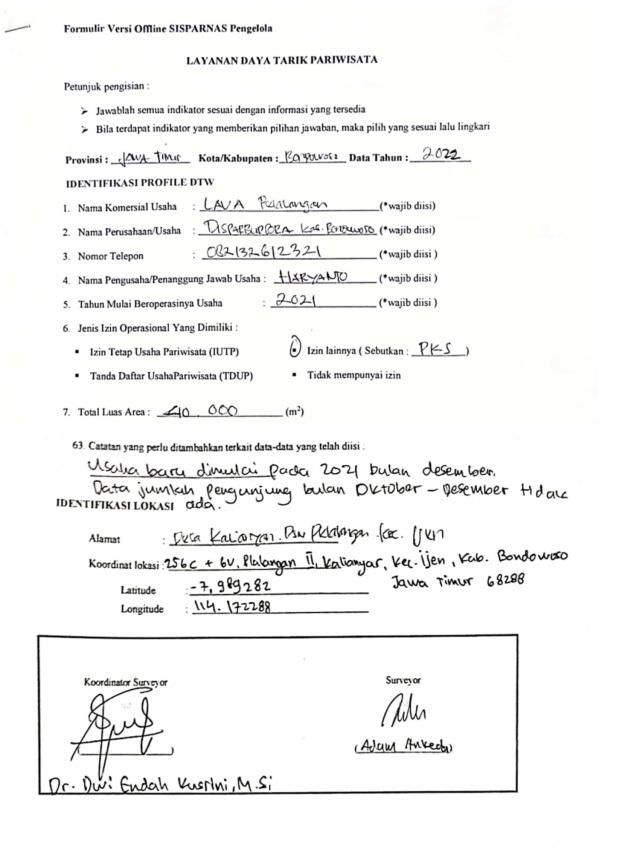 Formulir Versi Offline SISPARNAS Pengelola
LAYANAN DAYA TARIK PARIWISATA
Petunjuk pengisian :
➢ Jawablah semua indikator sesuai dengan informasi yang tersedia
➢ Bila terdapat indikator yang memberikan pilihan jawaban, maka pilih yang sesuai lalu lingkari
Provinsi : JAWA TIMUR Kota/Kabupaten : Bondowoso Data Tahun : 2022
IDENTIFIKASI PROFILE DTW
1. Nama Komersial Usaha : LAVA Plalangan (*wajib diisi)
2. Nama Perusahaan/Usaha : DISPARBUPORA Kab. Bondowoso (*wajib diisi)
3. Nomor Telepon : 082132612321 (*wajib diisi )
4. Nama Pengusaha/Penanggung Jawab Usaha : HARYANTO (*wajib diisi )
5. Tahun Mulai Beroperasinya Usaha : 2021 (*wajib diisi )
6. Jenis Izin Operasional Yang Dimiliki :
▪ Izin Tetap Usaha Pariwisata (IUTP) Izin lainnya ( Sebutkan : PKS )
▪ Tanda Daftar UsahaPariwisata (TDUP) ▪ Tidak mempunyai izin
7. Total Luas Area : 40.000 (m²)
63. Catatan yang perlu ditambahkan terkait data-data yang telah diisi :
Usaha baru dimulai pada 2021 bulan desember.
Data jumlah pengunjung bulan Oktober - Desember tidak
ada.
IDENTIFIKASI LOKASI
Alamat : Desa Kalianyar. Dsn Plalangan. Kec. Ijen
Koordinat lokasi : 256C + 6V, Plalangan II, Kalianyar, Kec. Ijen, Kab. Bondowoso
Jawa Timur 68288
Latitude : -7,989282
Longitude : 114.172288
Koordinator Surveyor Surveyor
(Adam )
Dr. Dwi Endah Kusrini, M.Si